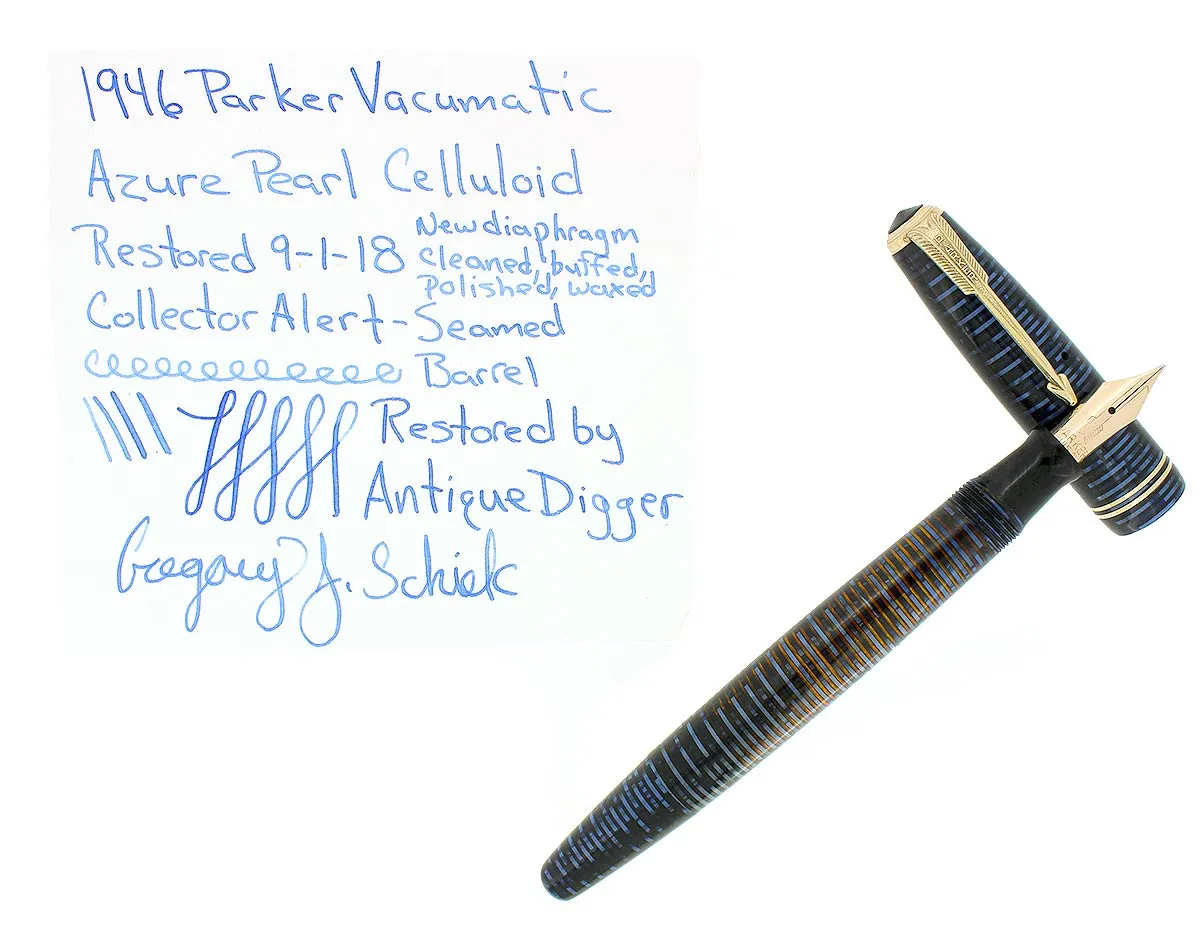 1946 Parker Vacumatic
Azure Pearl Celluloid
Restored 9-1-18 New diaphragm
cleaned, buffed,
Polished, waxed
Collector Alert - Seamed
Barrel
Restored by
Antique Digger
Gregory J. Schiek
PARKER